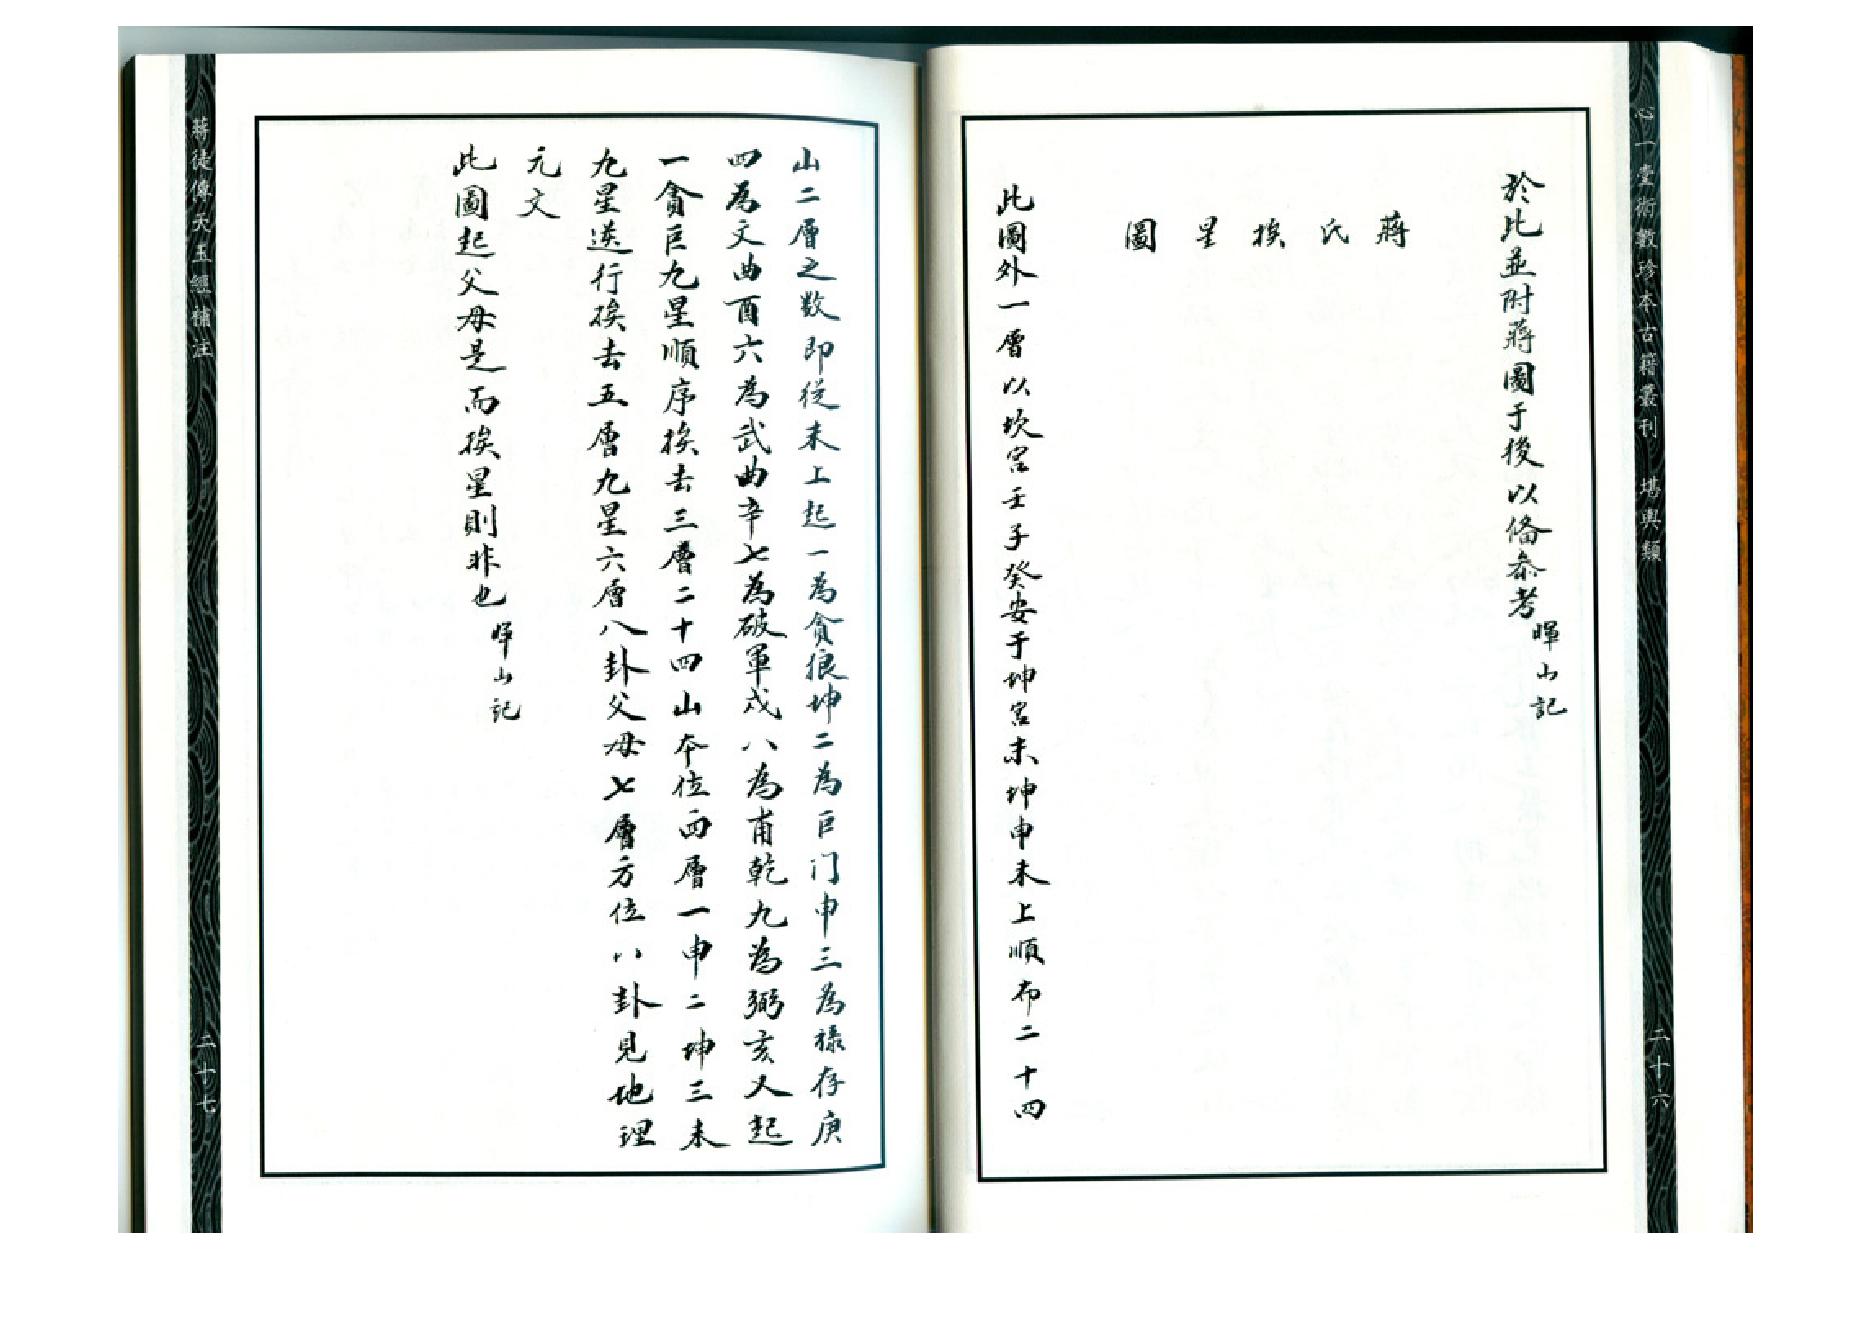 心一堂術數珍本古籍叢刊　堪輿類
二十六
於此並附蔣圖于後以俻叅考
暉山記
蔣氏挨星圖
此圖外一層以坎宮壬子癸安于坤宮未坤申未上順布二十四
山二層之数即從未上起一為貪狼坤二為巨门申三為祿存庚
四為文曲酉六為武曲辛七為破軍戌八為甫乾九為弼亥又起
一貪巨九星順序挨去三層二十四山本位四層一申二坤三未
九星逆行挨去五層九星六層八卦父母七層方位八卦見地理
元文
此圖起父母是而挨星則非也
暉山記
蔣徒傳天玉經補注
二十七